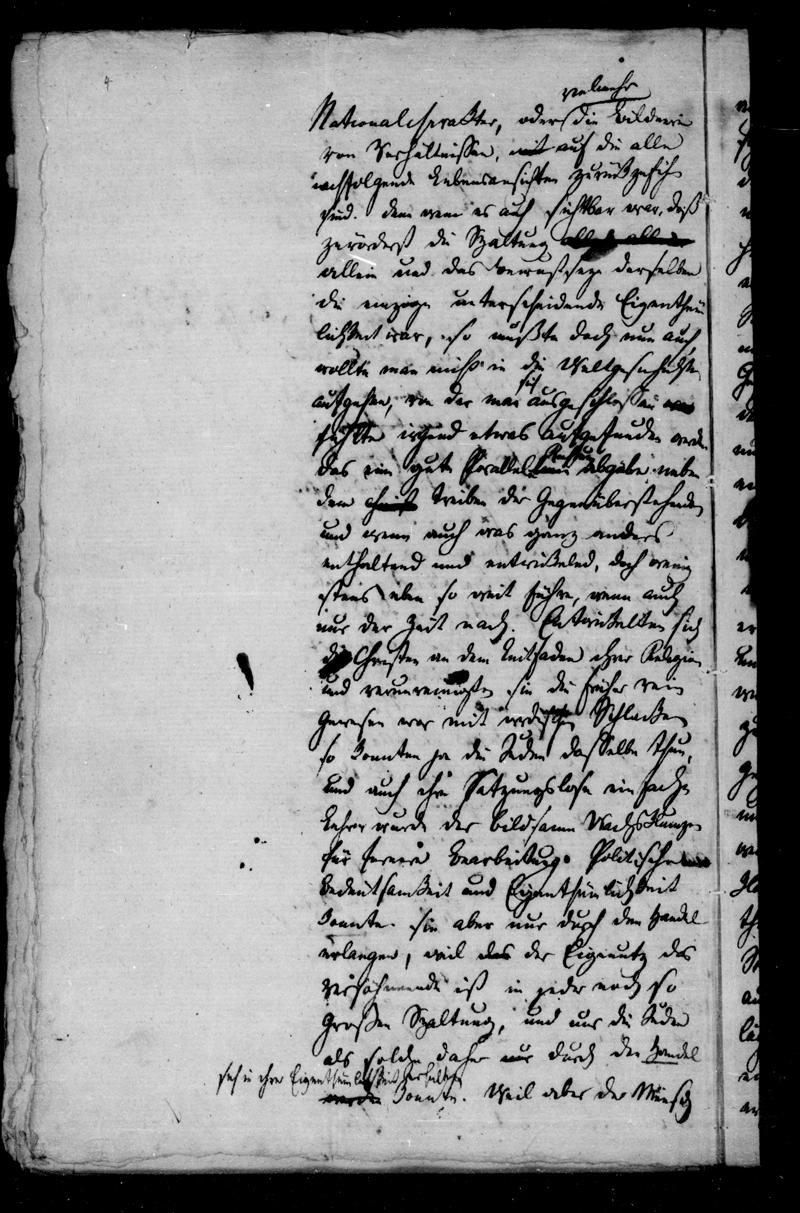 4
vielmehr
Nationalcharakter, oder die Bildnerei
von Verhältnissen, mit auf die alle
nachfolgende Lebensansichten zurückgeführt
sind. Denn wenn es auch sichtbar war, daß
zuvörderst die Spaltung
allein und das derselben
die einzige unterscheidende Eigenthüm
lichkeit war, so mußte doch nun auch,
wollte man nicht in die Weltgeschichte
aufgehen, von der man sich ausgeschlossen
fühlte irgend etwas aufgefunden werden
das ein gutes Parallel abgäbe neben
dem Treiben der Gegenüberstehenden
und wenn auch was ganz anders
enthaltend und entwickelnd, doch wenig
stens eben so weit führe, wenn auch
nur der Zeit nach. Entwickelten sich
die Christen an dem Leitfaden ihrer Religion
und verunreinigten sie die früher rein
gewesen war mit irdischen Schlacken
so konnten ja die Juden dasselbe thun,
und auch ihre Satzungslose einfache
Lehre wurde der bildsame Wachsklumpen
für fernere Bearbeitung. Politische
Bedeutsamkeit und Eigenthümlichkeit
konnten sie aber nur durch den Handel
erlangen, weil das der Eigennutz das
versöhnende ist in jeder noch so
großen Spaltung, und nur die Juden
als solche daher nur durch den Handel
sich in ihrer Eigenthümlichkeit erhalten
werden konnten. Weil aber der Mensch